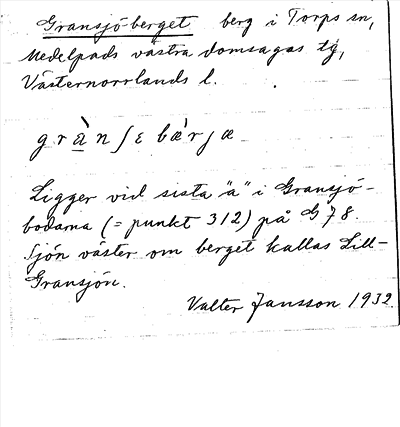 Gransjö-berget berg i Torps sn,
Medelpads västra domsagas tg,
Västernorrlands l.
grànʃɛbæ̀rjæ
Ligger vid sista "a" i Gransjö-
bodarna (= punkt 312) på G 78.
Sjön väster om berget kallas Lill-
Gransjön.
Valter Jansson 1932.